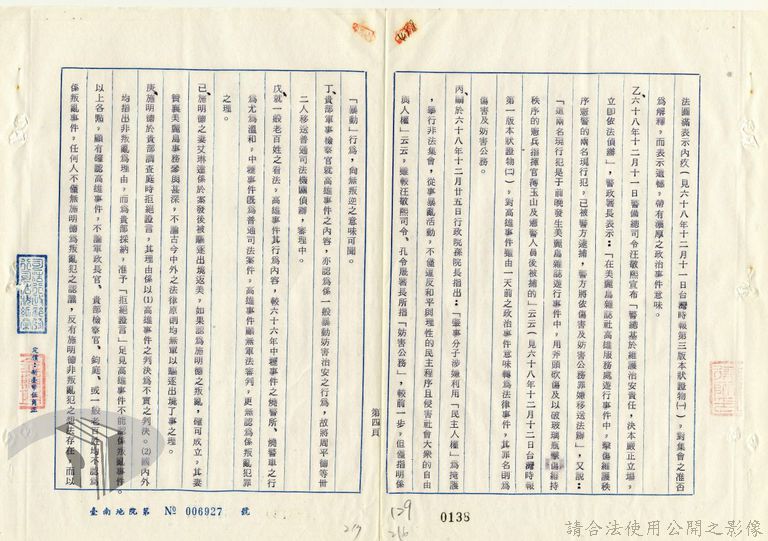 法圓滿表示內疚(見六十八年十二月十一日台灣時報第三版本狀證物㈠),對集會之准否
為解釋,而表示遺憾,帶有濃厚之政治事件意味。
乙、六十八年十二月十一日警備總司令汪敬煕宣布「警總基於維護治安責任,決本嚴正立場,
立即依法偵辦」,警政署長表示:「在美麗島雜誌社高雄服務處遊行事件中,擊傷維護秩
序憲警的兩名現行犯,已被警方逮捕,警方將依傷害及妨害公務罪嫌移送法辦」,又說:
「這兩名現行犯是于前晚發生美麗島雜誌遊行事件中,用斧頭砍傷及以破玻璃瓶擊傷維持
秩序的憲兵指揮官傅玉山及憲警人員後被捕的」云云(見六十八年十二月十二日台灣時報
第一版本狀證物㈡),對高雄事件雖由一天前之政治事件意味轉為法律事件,其罪名則為
傷害及妨害公務。
丙、嗣於六十八年十二月廿五日行政院孫院長指出:「肇事分子涉嫌利用「民主人權」為掩護
,舉行非法集會,從事暴亂活動,不僅違反和平與理性的民主程序且侵害社會大衆的自由
與人權」云云,雖較汪敬熙司令、孔令晟署長所指「妨害公務」,較前一步,但僅指明係
第四頁
「暴動」行為,尚無叛逆之意味可聞。
丁、貴部軍事檢察官就高雄事件之內容,亦認為係一般暴動妨害治安之行為,故將周平德等卅
二人移送普通司法機關偵辦,審理中。
戊、就一般老百姓之看法,高雄事件其行為內容,較六十六年中壢事件之燒警所、燒警車之行
為尤為溫和,中壢事件旣為普通司法案件,高雄事件顯無軍法審判,更無認為係叛亂犯罪
之理。
己、施明德之妻艾琳達係於案發後被驅逐出境返美,如果認為施明德之叛亂,確可成立,其妻
贊襄美麗島事務參與甚深,不論古今中外之法律原則均無單以驅逐出境了事之理。
庚、施明德於貴部調查庭時拒絕證言,其理由係以⑴高雄事件之判決為不實之判決。⑵國內外
均指出非叛亂為理由,而為貴部採納,准予「拒絕證言」足見高雄事件不能認係叛亂事件。
以上各點,顯有確認高雄事件,不論軍政長官、貴部檢察官、鈞庭、或一般老百姓均不認為
係叛亂事件,任何人不僅無施明德為叛亂犯之認識,反有施明德非叛亂犯之想法存在,而以
定價:新臺幣伍角正
臺南地院第 № 006927 號
129
216
217
0138
請合法使用公開之影像